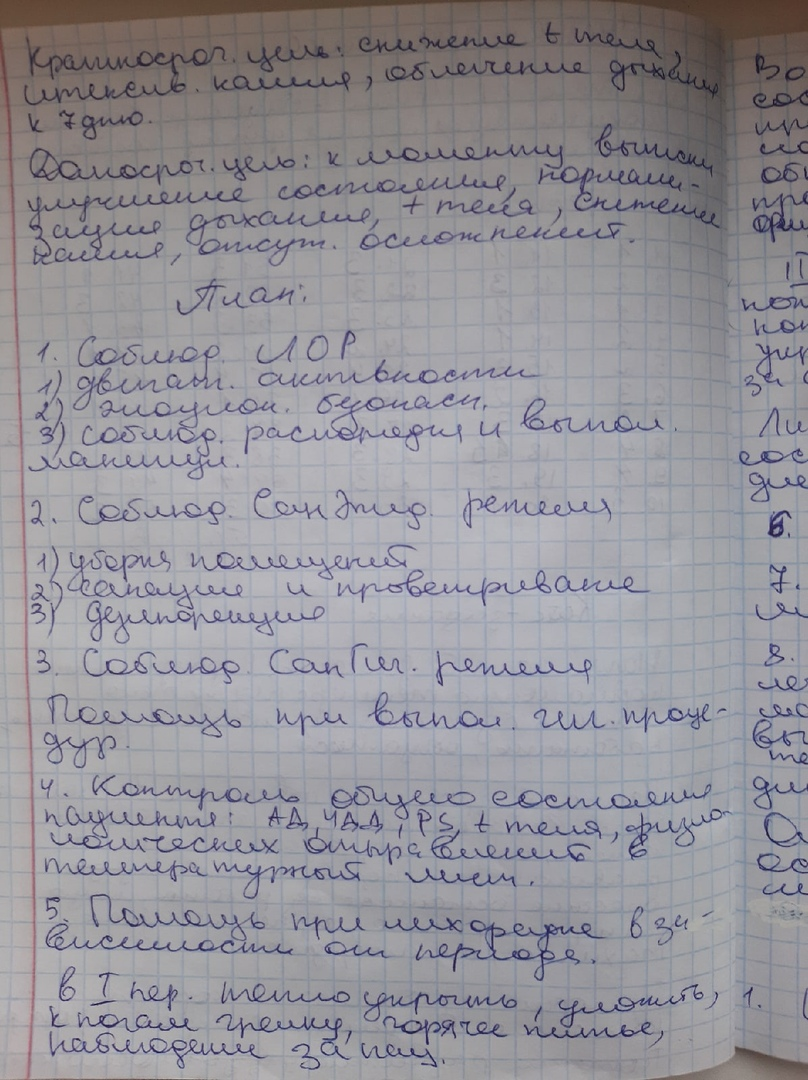 Краткосроч. цель: снижение t тела,
интенсив. кашля, облегчение дыхания
к 7 дню.
Долгосроч. цель: к моменту выписки
улучшение состояния, нормали-
зация дыхания, t тела, снижение
кашля, отсут. осложнений.
План:
1. Соблюд. ЛОР
1) двигат. активности
2) эмоцион. безопасн.
3) соблюд. распорядка и выпол.
манипул.
2. Соблюд. СанЭпид. режима
1) уборка помещений
2) санация и проветривание
3) дезинфекция
3. Соблюд. СанГиг. режима
Помощь при выпол. гиг. проце-
дур.
4. Контроль общего состояния
пациента: АД, ЧДД, PS, t тела, физио-
логических отправлений в
температурный лист.
5. Помощь при лихорадке в за-
висимости от периода.
в I пер. тепло укрыть, уложить,
к ногам грелку, горячее питье,
наблюдение за пац.
II
за
6.
7.
8.
1.